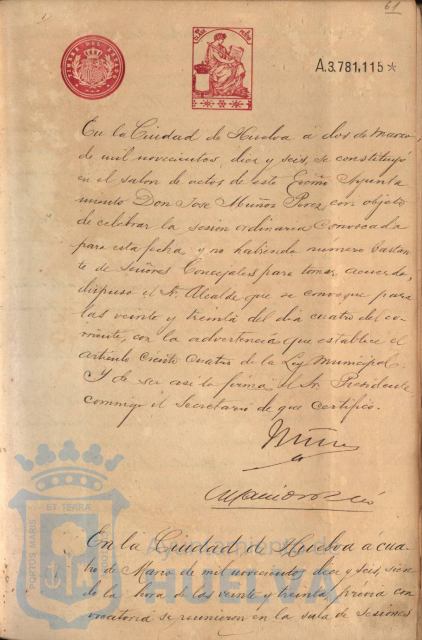 61
TIMBRE DEL ESTADO
A.3.781,115*
En la Ciudad de Huelva á dos de Marzo,
de mil novecientos, diez y seis, se constituyó
en el salon de actos de este Excmo Ayunta
miento Don Jose Muñoz Perez, con objeto
de celebrar la sesion ordinaria convocada
para esta fecha y no habiendo numero bastan
te de Señores Concejales para tomar acuerdo,
dispuso el Sr. Alcalde que se convoque para
las veinte y treinta del dia cuatro del co-
rriente, con la advertencia que establece el
articulo ciento cuatro de la Ley Municipal.
Y de ser asi lo firma el Sr. Presidente
conmigo el Secretario de que certifico.
Muñoz
En la Ciudad de Huelva a cua
tro de Marzo de mil novecientos, diez y seis, siendo
la hora de las veinte y treinta, prévia con
vocatoria se reunieron en la sala de sesiones
PORTUS MARIS ET TERRAE
Ayuntamiento de
HUELVA